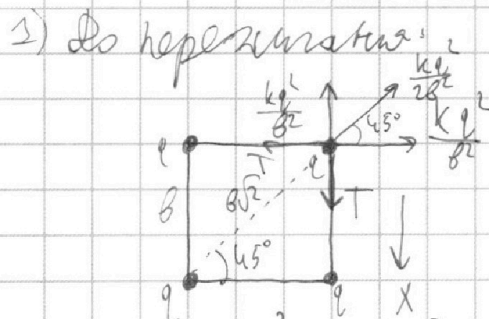 1) До пережигания:
kq²/2b²
kq²/b² 45° kq²/b²
q T q
b b√2 T
45°
q q X